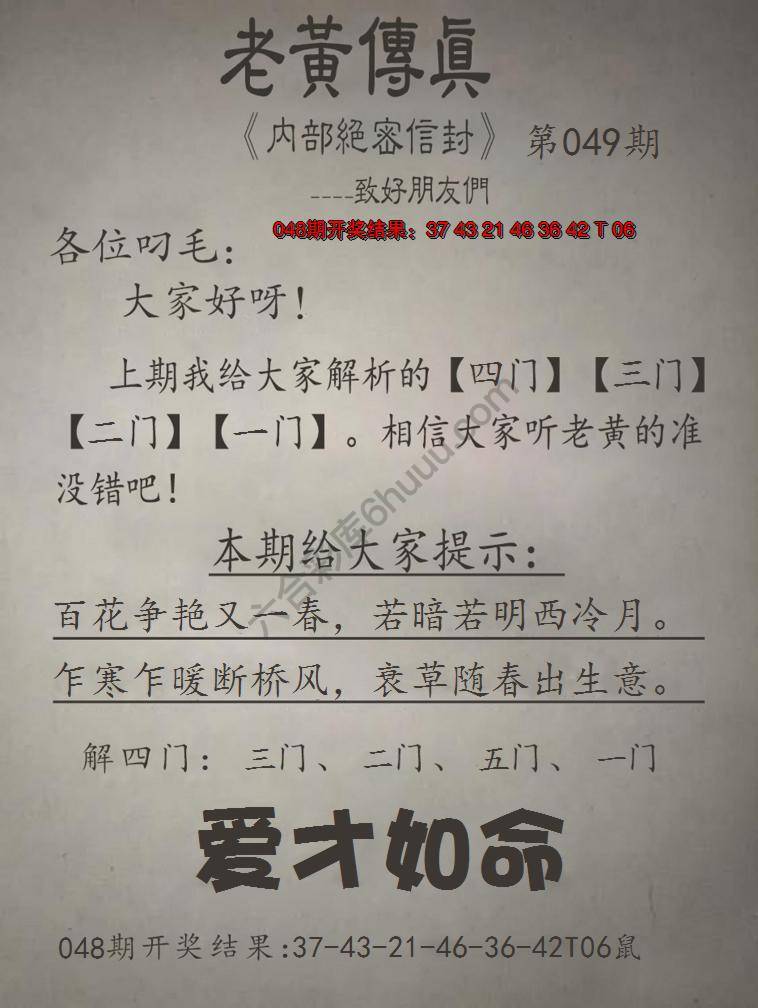 老黃傳眞
《内部絕密信封》 第049期
----致好朋友們
048期开奖结果：37 43 21 46 36 42 T 06
各位叼毛：
大家好呀！
上期我给大家解析的【四门】【三门】
【二门】【一门】。相信大家听老黄的准
没错吧！
本期给大家提示：
百花争艳又一春，若暗若明西冷月。
乍寒乍暖断桥风，衰草随春出生意。
解四门：三门、二门、五门、一门
爱才如命
048期开奖结果:37-43-21-46-36-42T06鼠
六合彩库6huuu.com